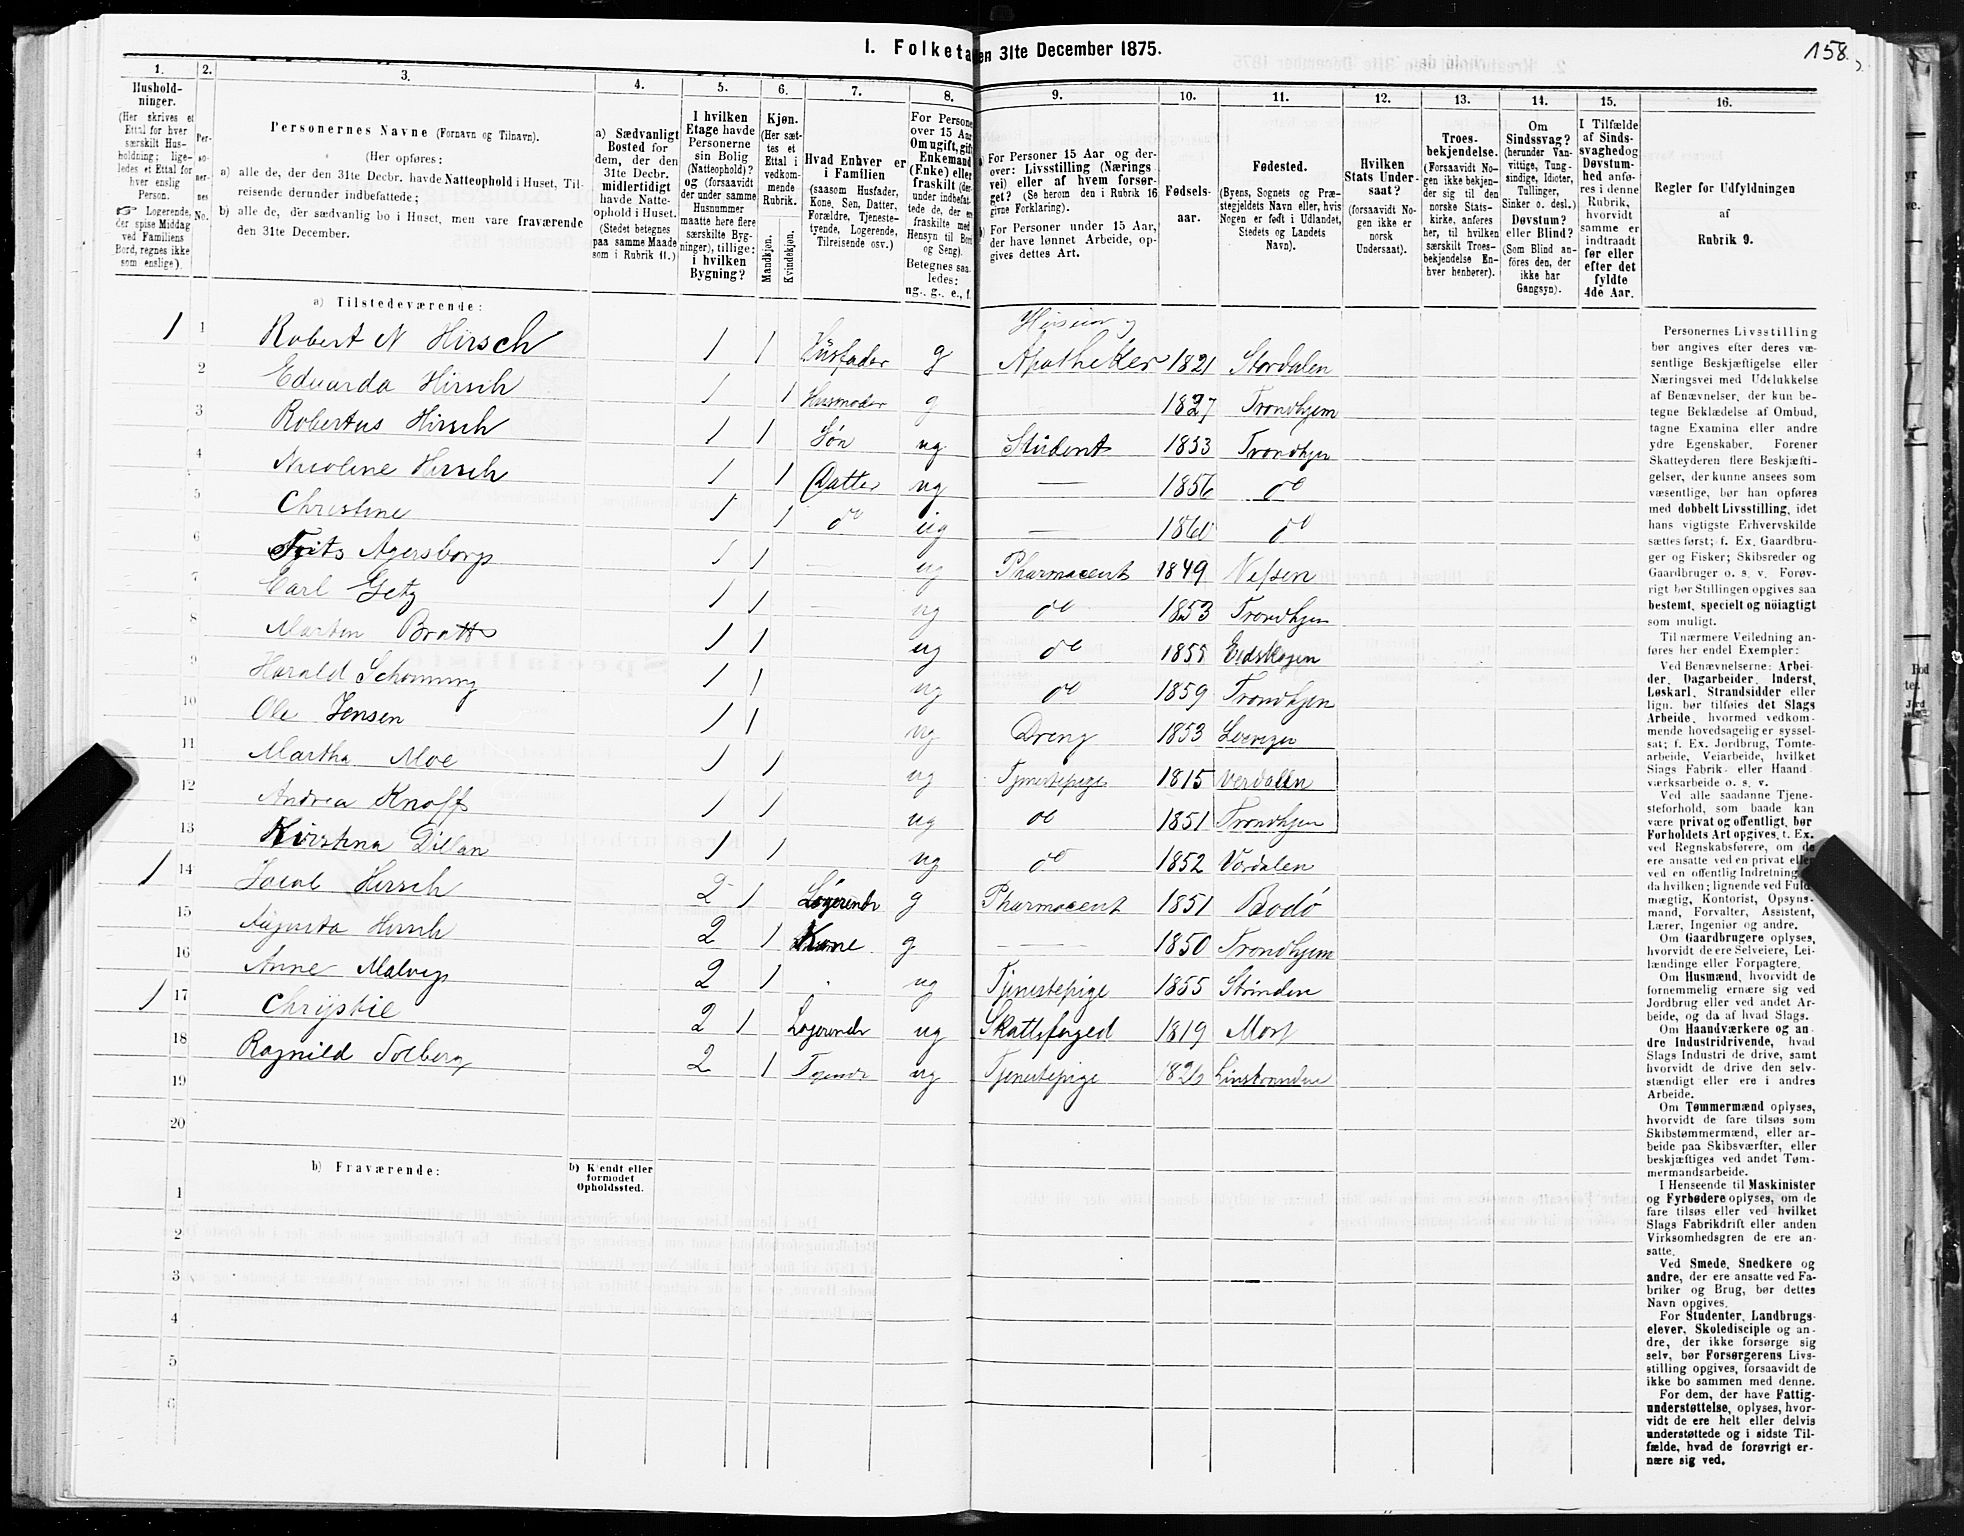 I. Folketa en 31te December 1875.
158
1. 2. 3. 4. 5. 6. 7. 8. 9. 10. 11. 12. 13. 14. 15. 16.
Hushold-
ninger.
(Her skrives et
Ettal for hver
særskilt Hus-
holdning; lige-
ledes et Ettal for
hver enslig
Person.
☞ Logerende,
der spise Middag
ved Familiens
Bord, regnes ikke
som enslige).
Per-
so-
ner-
nes
No.
Personernes Navne (Fornavn og Tilnavn).
(Her opføres:
a) alle de, der den 31te Decbr. havde Natteophold i Huset, Til-
reisende derunder indbefattede;
b) alle de, der sædvanlig bo i Huset, men vare fraværende
den 31te December.
a) Sædvanligt
Bosted for
dem, der den
31te Decbr.
midlertidigt
havde Natte-
ophold i Huset.
(Stedet betegnes
paa samme Maade
som i Rubrik 11.)
I hvilken
Etage havde
Personerne
sin Bolig
(Natteophold)?
og (forsaavidt
der under samme
Husnummer
maatte høre flere
særskilte Byg-
ninger), tillige:
i hvilken
Bygning?
Kjøn.
(Her sæt-
tes et
Ettal i
vedkom-
mende
Rubrik.
Mandkjøn.
Kvindekjøn.
Hvad Enhver er
i Familien
(saasom Husfader,
Kone, Søn, Datter,
Forældre, Tjeneste-
tyende, Logerende,
Tilreisende osv.)
For Persone
over 15 Aar
Om ugift, gift
Enkemand
(Enke) eller
fraskilt (der-
under indbefat-
tede de, der er
fraskilte med
Hensyn til Bord
og Seng).
Betegnes saa-
ledes:
ug., g., e., f.
For Personer 15 Aar og der-
over: Livsstilling (Nærings
vei) eller af hvem forsør-
get? (Se herom den i Rubrik 16
givne Forklaring).
For Personer under 15 Aar,
der have lønnet Arbeide, op-
gives dettes Art.
Fødsels-
aar.
Fødested.
(Byens, Sognets og Præ-
stegjeldets Navn eller, hvis
Nogen er født i Udlandet,
Stedets og Landets
Navn).
Hvilken
Stats Under-
saat?
(forsaavidt No-
gen ikke er
norsk
Undersaat).
Troes-
bekjendelse.
(Forsaavidt No-
gen ikke bekjen-
der sig til den
norske Stats-
kirke, anføres
her, til hvilken
særskilt Troes-
bekjendelse En-
hver henhører).
Om
Sindssvag?
(herunder Van-
vittige, Tung-
sindige, Idioter,
Tullinger,
Sinker o. desl.)
Døvstum?
eller Blind?
(Som Blind an-
føres den, der
ikke har
Gangsyn).
I Tilfælde
af Sinds-
svaghed og
Døvstum-
hed anfø-
res i denne
Rubrik,
hvorvidt
samme er
indtraadt
før eller
efter det
fyldte
4de Aar.
Regler for Udfyldningen
af
Rubrik 9.
a) Tilstedeværende:
1 1 Robert N Hirsch 1 1 Husfader g Apotheker 1821 Stordalen
2 Edvarda Hirsch 1 1 Husmoder g 1827 Trondhjem
3 Robertus Hirsch 1 1 Søn ug Student 1853 Trondhjem
4 Nicoline Hirsch 1 1 Datter ug — 1856 do
5 Christine 1 1 do ug — 1860 do
6 Frits Agersborg 1 1 — ug Pharmaceut 1849 Nessen
7 Carl Getz 1 1 — ug do 1853 Trondhjem
8 Martin Bratt 1 1 ug do 1855 Eidskogen
9 Harald Schønning 1 1 ug do 1859 Trondhjem
10 Ole Jensen 1 1 ug Dreng 1853
11 Martha Moe 1 1 ug Tjenestepige 1815 Verdalen
12 Andrea Knoff 1 1 ug do 1851 Trondhjem
13 Kirstina Dillan 1 1 ug do 1852 Verdalen
1 14 Jacob Hirsch 2 1 Logerende g Pharmaceut 1851 Bodö
15 Augusta Hirsch 2 1 Kone g — 1850 Trondhjem
16 Anne Malvig 2 1 ug Tjenestepige 1855 Strinden
1 17 Chrystie 2 1 Logerende ug Skattefoged 1819
18 Ragnild Solberg 2 1 ug Tjenestepige
19
20
b) Fraværende:
b) Kjendt eller
formodet
Opholdssted.
1
2
3
4
5
6
Personernes Livsstilling
bør angives efter deres væ-
sentlige Beskjæftigelse eller
Næringsvei med Udelukkelse
af Benævnelser, der kun be-
tegne Beklædelse af Ombud,
tagne Examina eller andre
ydre Egenskaber. Forener
Skatteyderen flere Beskjæfti-
gelser, der kunne ansees som
væsentlige, bør han opføres
med dobbelt Livsstilling, idet
hans vigtigste Erhvervskilde
sættes først; f. Ex. Gaardbru-
ger og Fisker; Skibsreder og
Gaardbruger o. s. v. Forøv-
rigt bør Stillingen opgives saa
bestemt, specielt og nöiagtigt
som muligt.
Til nærmere Veiledning an-
føres her endel Exempler:
Ved Benævnelserne: Arbei-
der, Dagarbeider, Inderst,
Løskarl, Strandsidder eller
lign. bør tilføies det Slags
Arbeide, hvormed vedkom-
mende hovedsagelig er syssel-
sat; f. Ex. Jordbrug, Tomte-
arbeide, Veiarbeide, hvilket
Slags Fabrik- eller Haand-
værksarbeide o. s. v.
Ved alle saadanne Tjene-
steforhold, som baade kan
være privat og offentligt, bør
Forholdets Art opgives, t. Ex.
ved Regnskabsførere, om de
ere ansatte ved en privat eller
ved en offentlig Indretning,
da hvilken; lignende ved Fuld-
mægtig, Kontorist, Opsyns-
mand, Forvalter, Assistent,
Lærer, Ingeniør og andre.
Om Gaardbrugere oplyses,
hvorvidt de ere Selveiere, Lei-
lændinge eller Forpagtere.
Om Husmænd, hvorvidt de
fornemmelig ernære sig ved
Jordbrug eller ved andet Ar-
beide, og da af hvad Slags.
Om Haandværkere og an-
dre Industridrivende, hvad
Slags Industri de drive, samt
hvorvidt de drive den selv-
stændigt eller ere i andres
Arbeide.
Om Tømmermænd oplyses,
hvorvidt de fare tilsøs som
Skibstømmermænd, eller ar-
beide paa Skibsværfter, eller
beskjæftiges ved andet Tøm-
mermandsarbeide.
I Henseende til Maskinister
og Fyrbødere oplyses, om de
fare tilsøs eller ved hvilket
Slags Fabrikdrift eller anden
Virksomhedsgren de ere an-
satte.
Ved Smede, Snedkere og
andre, der ere ansatte ved Fa-
briker og Brug, bør dettes
Navn opgives.
For Studenter, Landbrugs-
elever, Skoledisciple og an-
dre, der ikke forsørge sig
selv, bør Forsørgerens Livs-
stilling opgives, forsaavidt de
ikke bo sammen med denne.
For dem, der have Fattig-
understøttelse, oplyses, hvor-
vidt de ere helt eller delvis
understøttede og i sidste Til-
fælde, hvad de forøvrigt er-
nære sig ved.